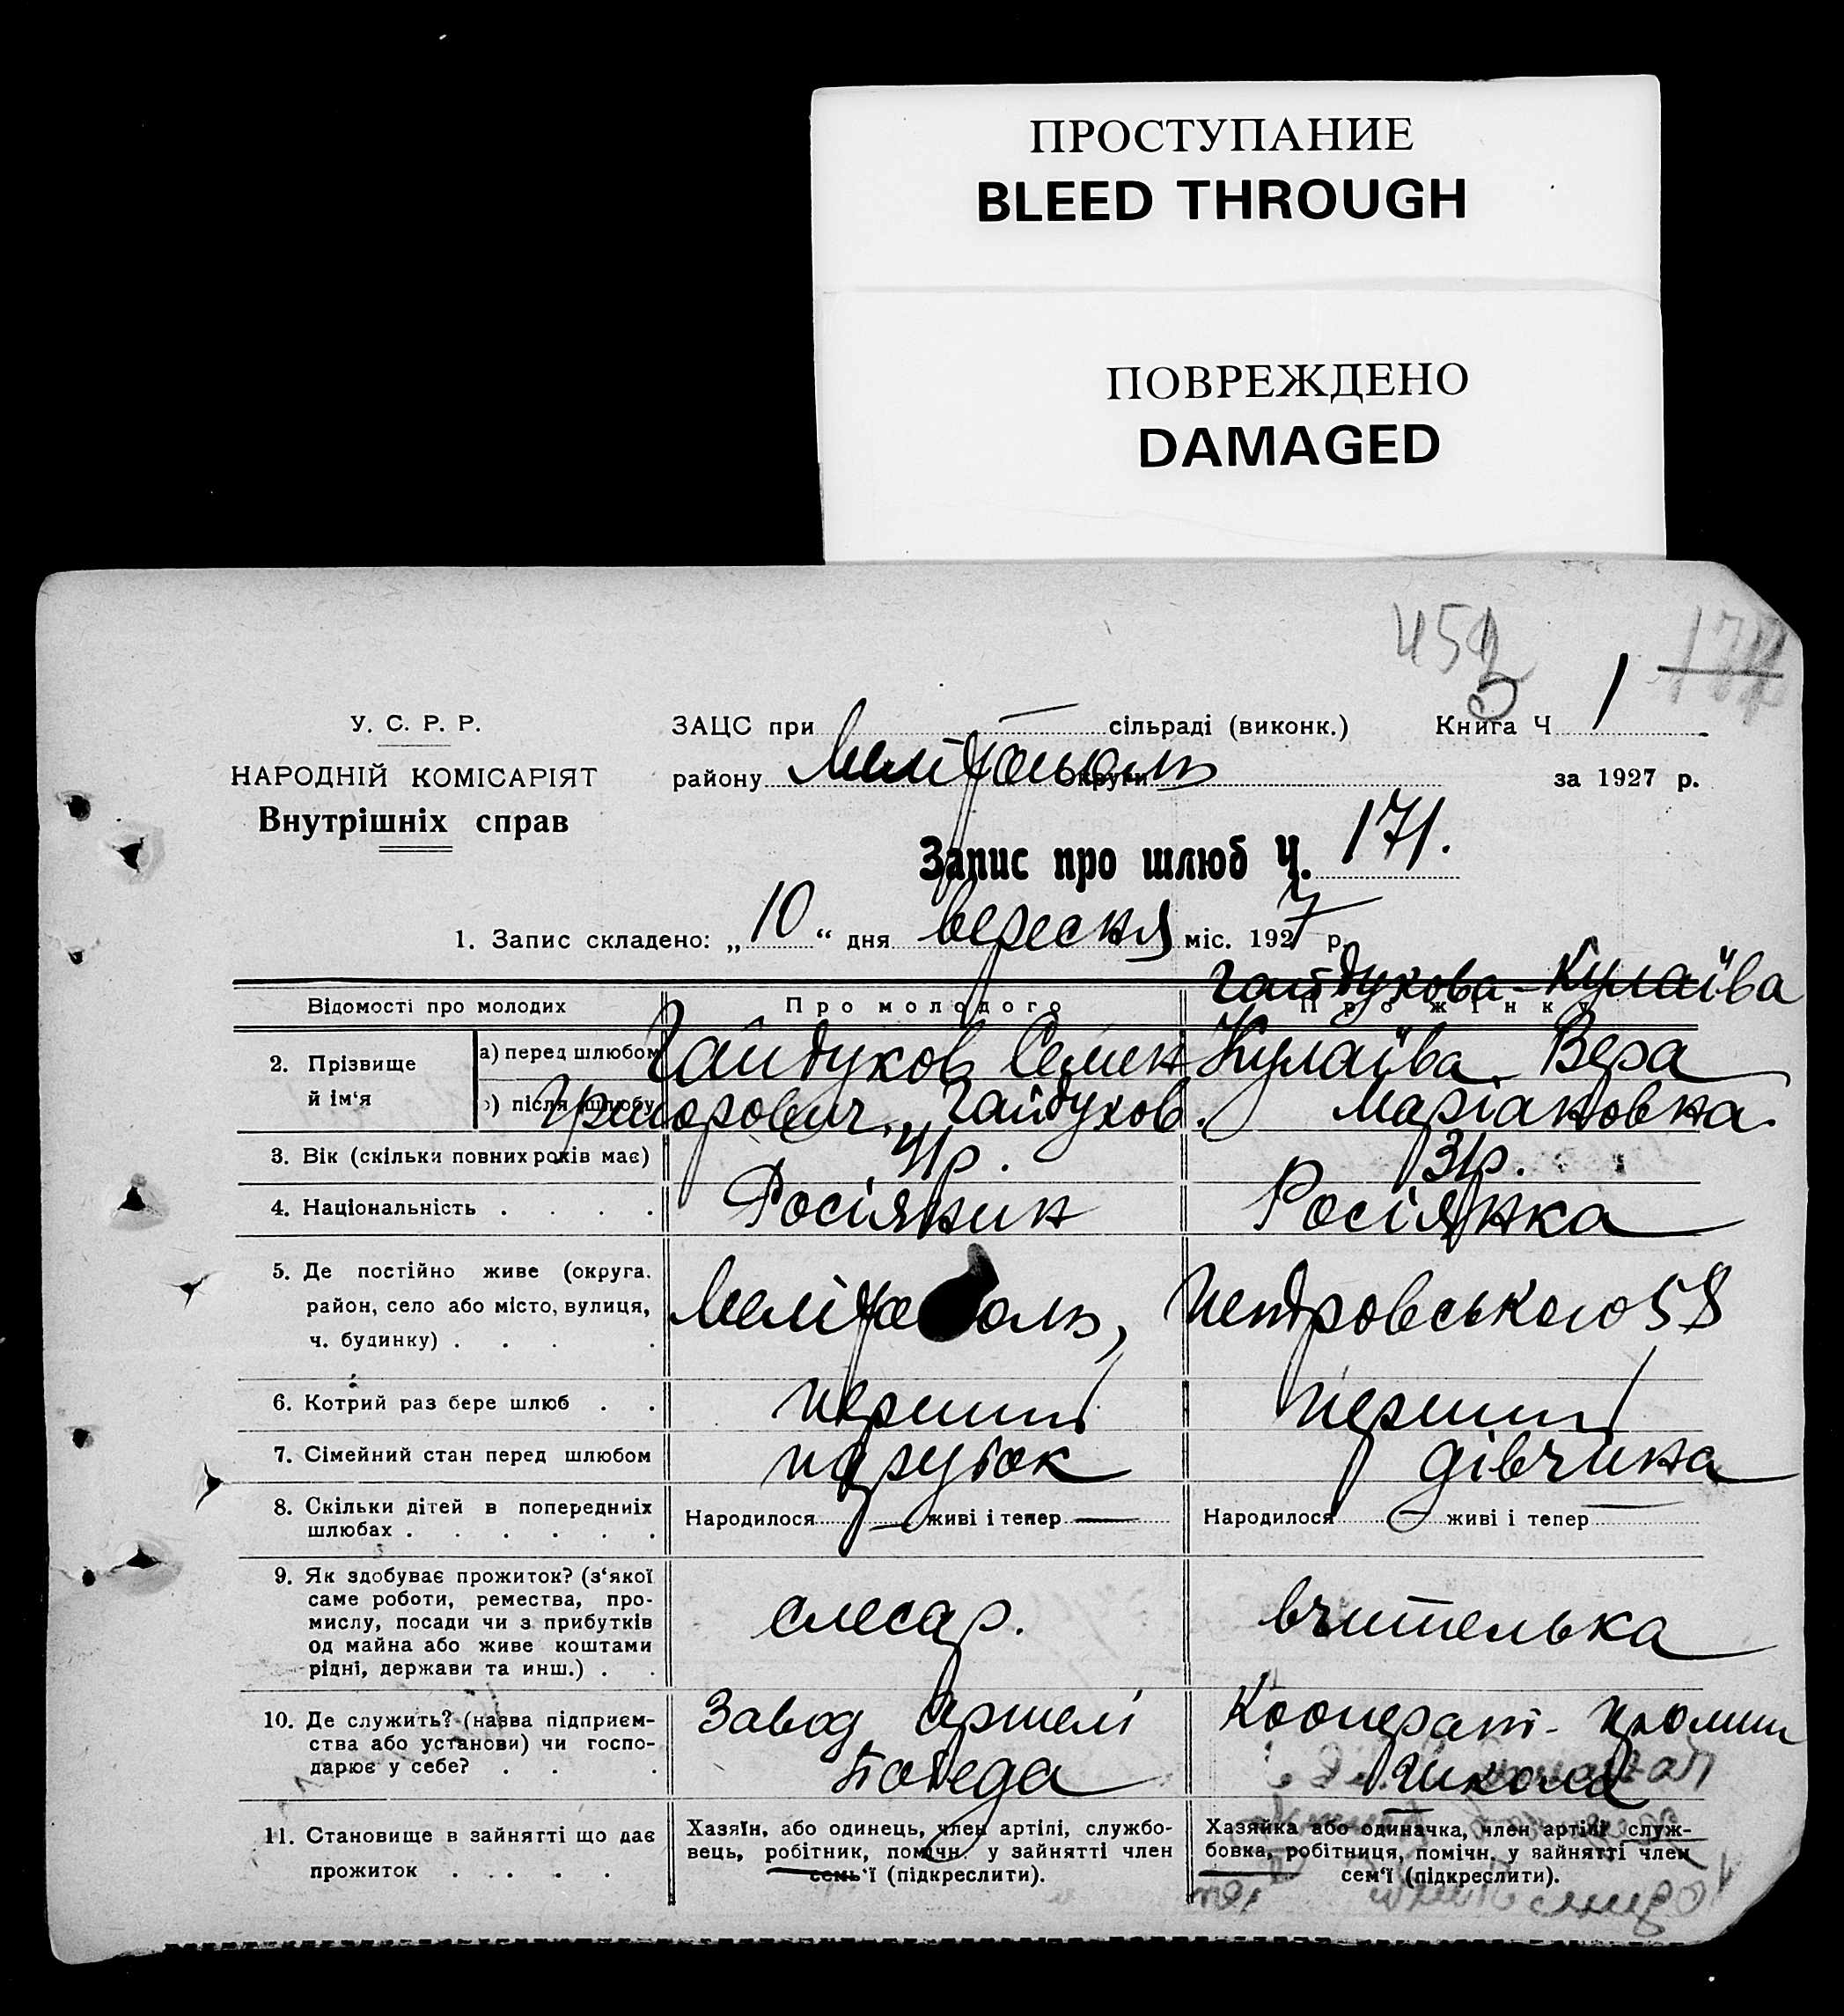 ПРОСТУПАНИЕ
BLEED THROUGH
ПОВРЕЖДЕНО
DAMAGED
У. С. Р. Р.
НАРОДНІЙ КОМІСАРІЯТ
Внутрішніх справ
ЗАЦС при — сільраді (виконк.) Книга Ч 1
району Мелітополь округи за 1927 р.
Запис про шлюб Ч. 171.
1. Запис складено: „ 10 “ дня вересня міс. 1927 р.
Гайдукова-Кулаїва
Відомості про молодих Про молодого Про жінку
2. Прізвище й ім‘я
а) перед шлюбом Гайдуков Семен Кулаїва Вера
після шлюбу Григорович „Гайдуков. Маріановна.
3. Вік (скільки повних років має) 41р. 31р.
4. Національність . . . . Росіянин Росіянка
5. Де постійно живе (округа,
район, село або місто, вулиця, Мелітополь, Петровського 58
ч. будинку) . . . .
6. Котрий раз бере шлюб . . перший перший
7. Сімейний стан перед шлюбом парубок дівчина
8. Скільки дітей в попередниіх
шлюбах . . . . . . Народилося — живі і тепер — Народилося — живі і тепер —
9. Як здобуває прожиток? (з‘якої
саме роботи, ремества, про-
мислу, посади чи з прибутків слесар. вчителька
од майна або живе коштами
рідні, держави та инш.) . .
10. Де служить? (назва підприєм- Завод Артелі Кооперат-
ства або установи) чи госпо-
дарює у себе? . . . Победа Школа
11. Становище в зайнятті що дає
прожиток . . . .
Хазяїн, або одинець, член артілі, службо-
вець, робітник, помічн. у зайнятті член
семь‘ї (підкреслити).
Хазяйка або одиначка, член артілі служ-
бовка, робітниця, помічн. у зайнятті член
сем‘ї (підкреслити).